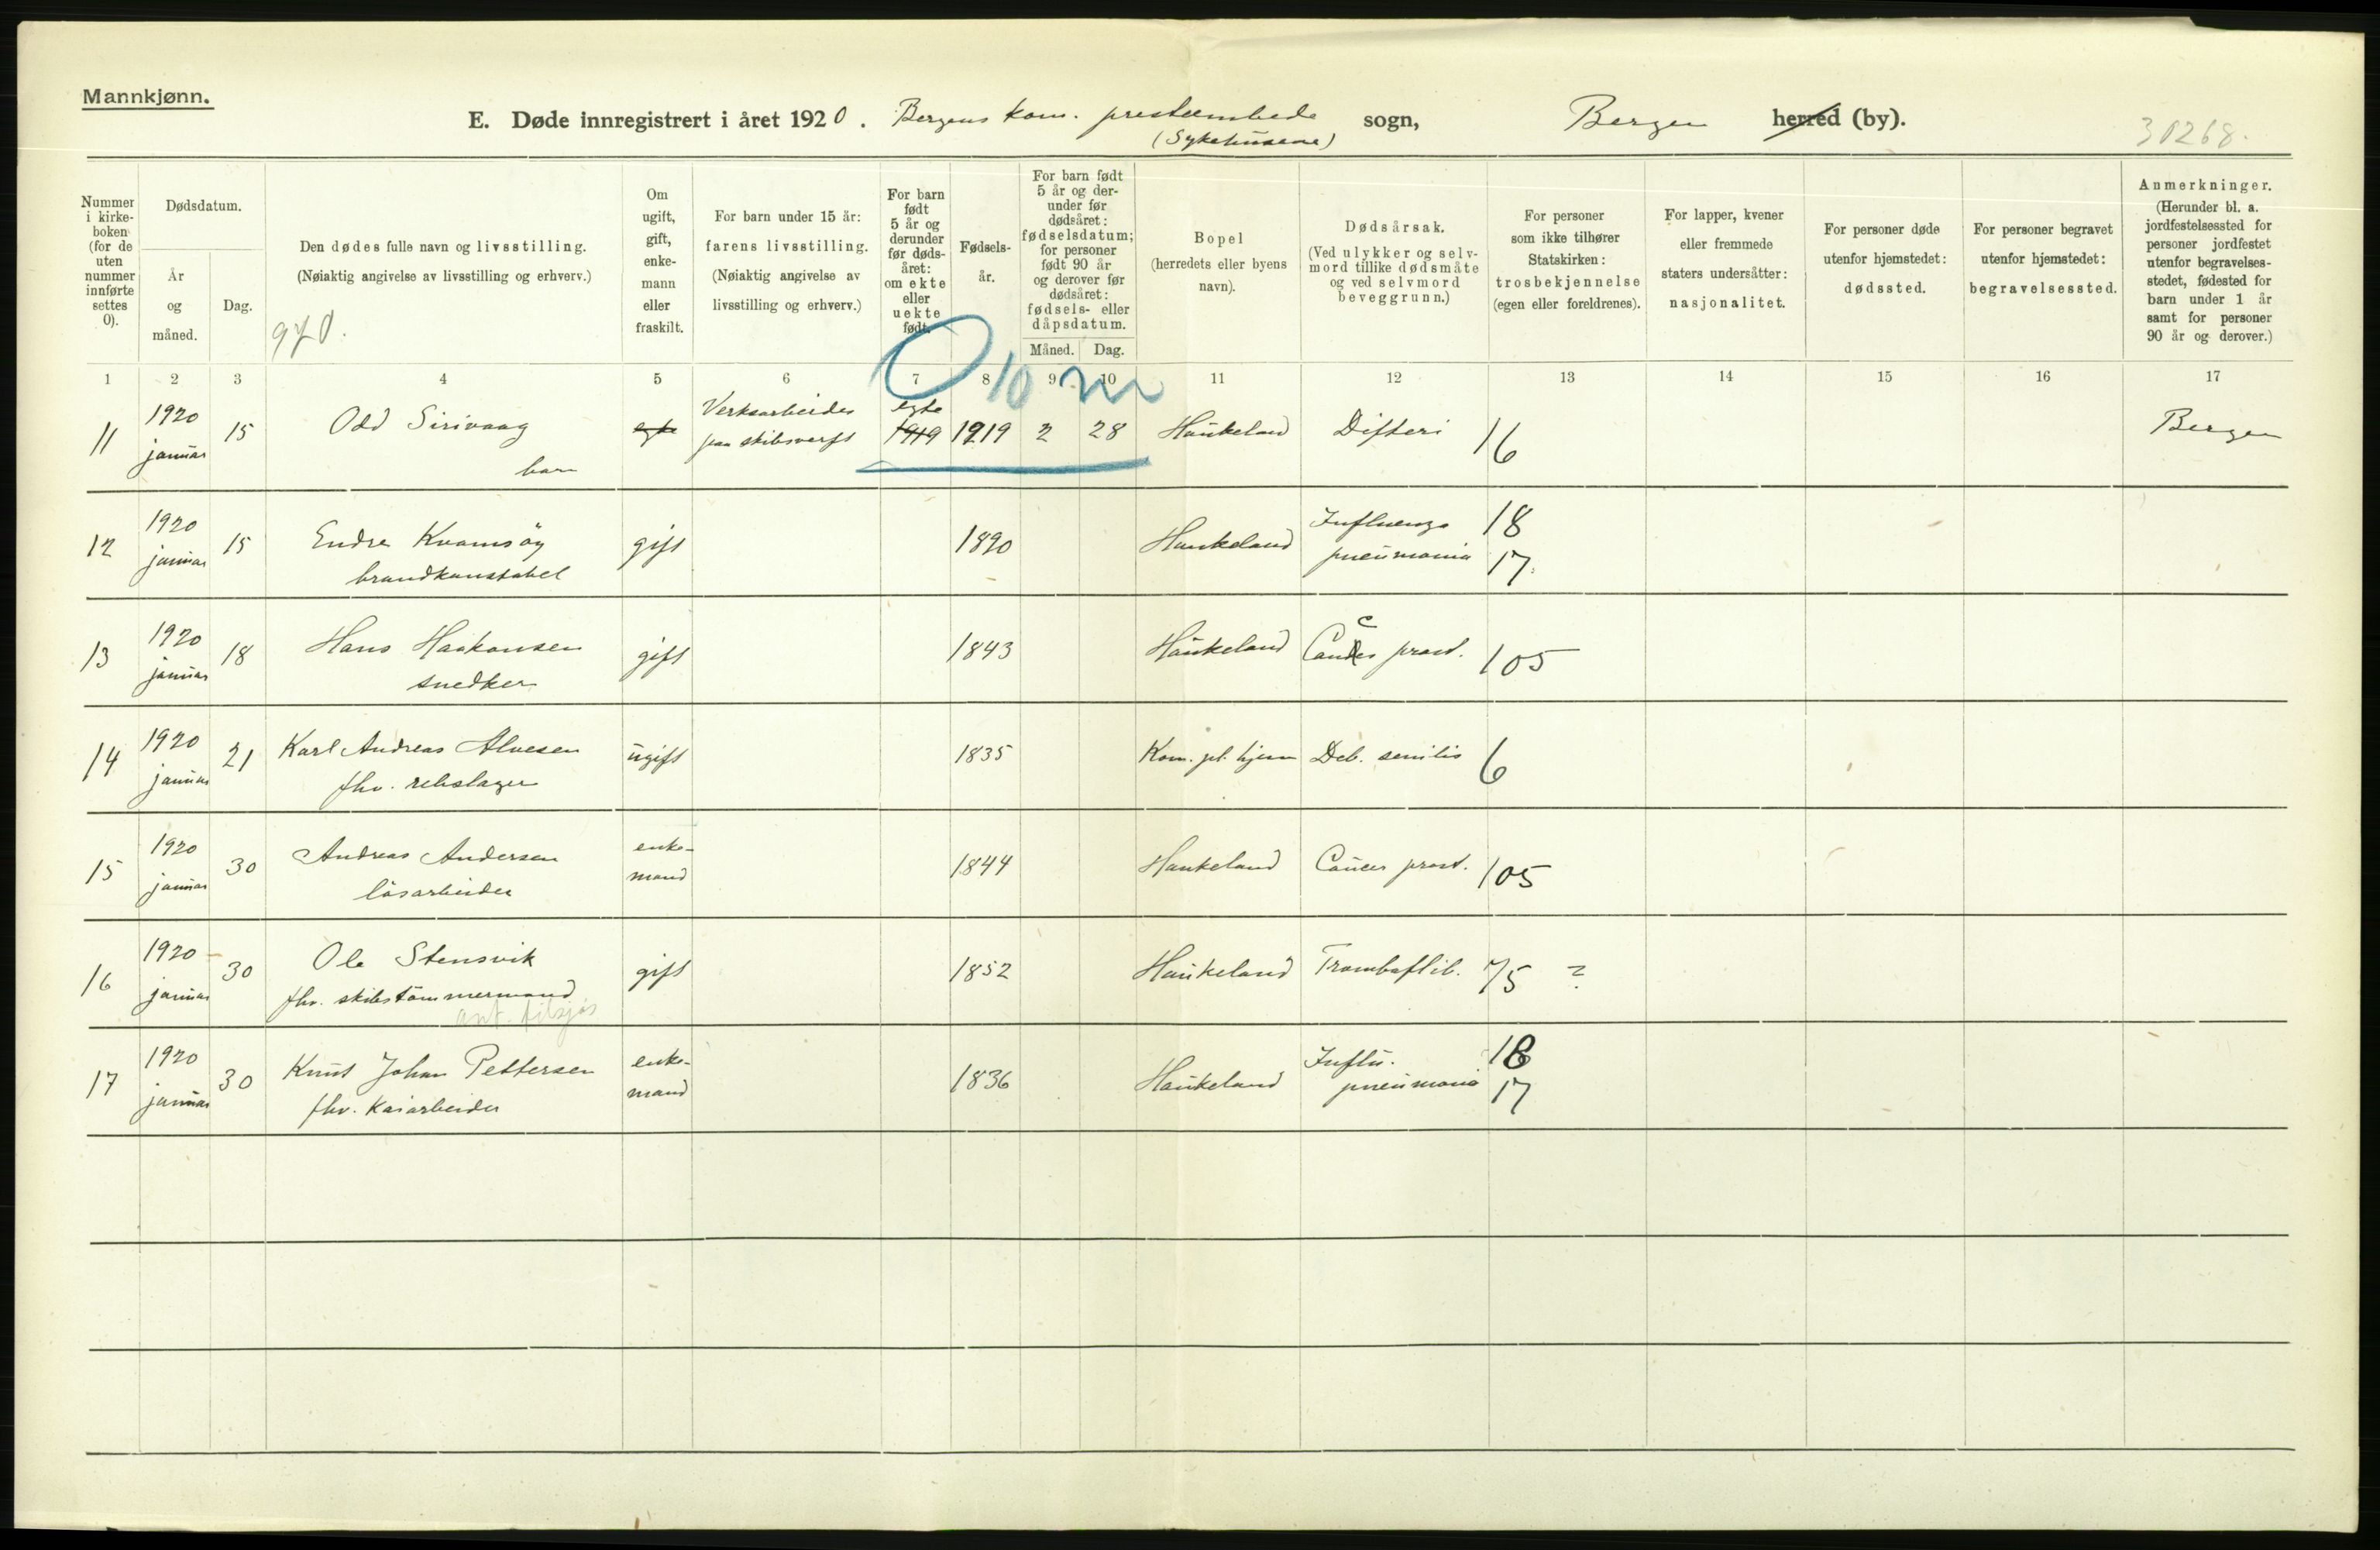 Mannkjønn.
E. Døde innregistrert i året 1920. Bergens kom. presteembede sogn, Bergen herred (by).
(Sykehusene)
30268.
Nummer i kirke-boken (for de uten nummer innførte settes 0).
Dødsdatum.
År og måned.
Dag.
Den dødes fulle navn og livsstilling.
(Nøiaktig angivelse av livsstilling og erhverv.)
970.
Om ugift, gift, enke-mann eller fraskilt.
For barn under 15 år: farens livsstilling.
(Nøiaktig angivelse av livsstilling og erhverv.)
For barn født 5 år og derunder før døds-året: om ekte eller uekte født.
Fødsels-år.
For barn født 5 år og der-under før dødsåret: fødselsdatum; for personer født 90 år og derover før dødsåret: fødsels- eller dåpsdatum.
Måned. Dag.
Bopel
(herredets eller byens navn).
Dødsårsak.
(Ved ulykker og selv-mord tillike dødsmåte og ved selvmord beveggrunn.)
For personer som ikke tilhører Statskirken: trosbekjennelse (egen eller foreldrenes).
For lapper, kvener eller fremmede staters undersåtter: nasjonalitet.
For personer døde utenfor hjemstedet: dødssted.
For personer begravet utenfor hjemstedet: begravelsessted.
Anmerkninger.
(Herunder bl. a. jordfestelsessted for personer jordfestet utenfor begravelses-stedet, fødested for barn under 1 år samt for personer 90 år og derover.)
1 2 3 4 5 6 7 8 9 10 11 12 13 14 15 16 17
10 m
11 1920 januar 15 Odd Sirivaag egte Verksarbeider egte 1919 1919 2 28 Haukeland Difteri 16 Bergen
barn paa skibsverft
12 1920 januar 15 Endre Kvamsøy gift 1890 Haukeland Influenza 18
brandkonstabel pneumonia 17
13 1920 januar 18 Hans Haakonsen gift 1843 Haukeland Cancer prost. 105
snedker
14 1920 januar 21 Karl Andreas Alvesen ugift 1835 Kom. pl. hjem Deb. senilis 6
fhv. rebslager
15 1920 januar 30 Andreas Andersen enke- 1844 Haukeland Cancer prost. 105
løsarbeider mand
16 1920 januar 30 Ole Stensvik gift 1852 Haukeland Tromboflib. 75 ?
fhv. skibstømmermand
17 1920 januar 30 Knut Johan Pettersen enke- 1836 Haukeland Influ. 18
fhv. kaiarbeider mand pneumonia 17